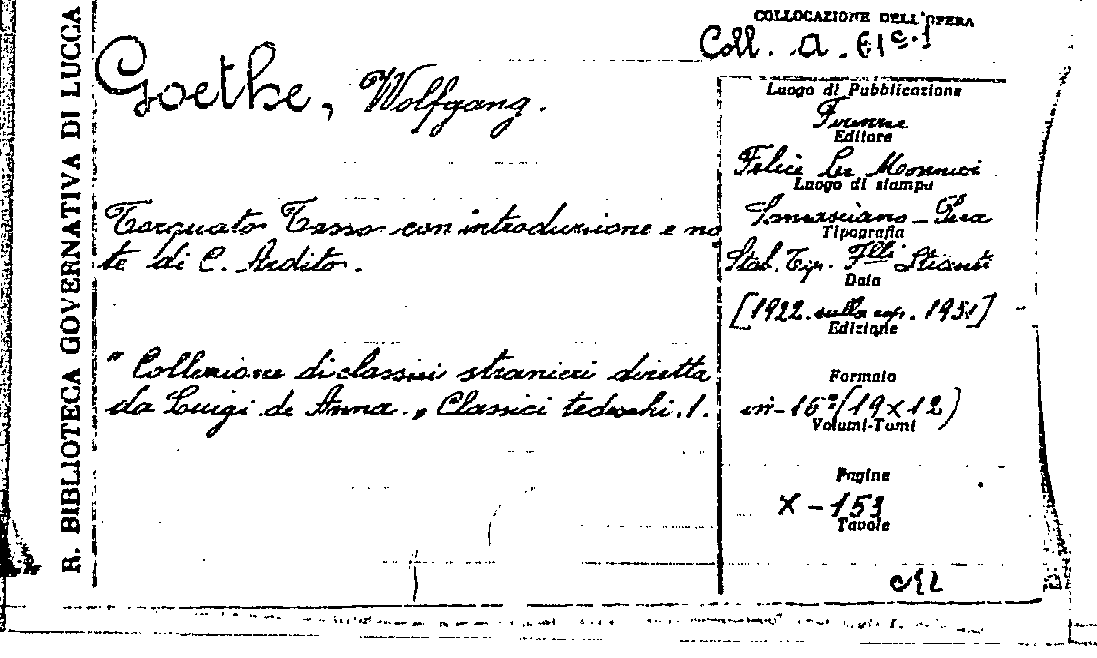 R. BIBLIOTECA GOVERNATIVA DI LUCCA
COLLOCAZIONE DELL'OPERA
Coll. a. 61c.1
Goethe, Wolfgang.
Torquato Tasso con introduzione e no
te di C. Ardito.
" Collezione di classici stranieri diretta
da Luigi de Anna. „ Classici tedeschi. 1.
Luogo di Pubblicazione
Firenze
Editore
Felice Le Monnier
Luogo di stampa
Sancasciano - Pesa
Tipografia
Stab. Tip. Flli Stianti
Data
[1922. sulla cop. 1931]
Edizione
Formato
in-16º (19 x 12)
Volumi-Tomi
Pagine
X - 153
Tavole